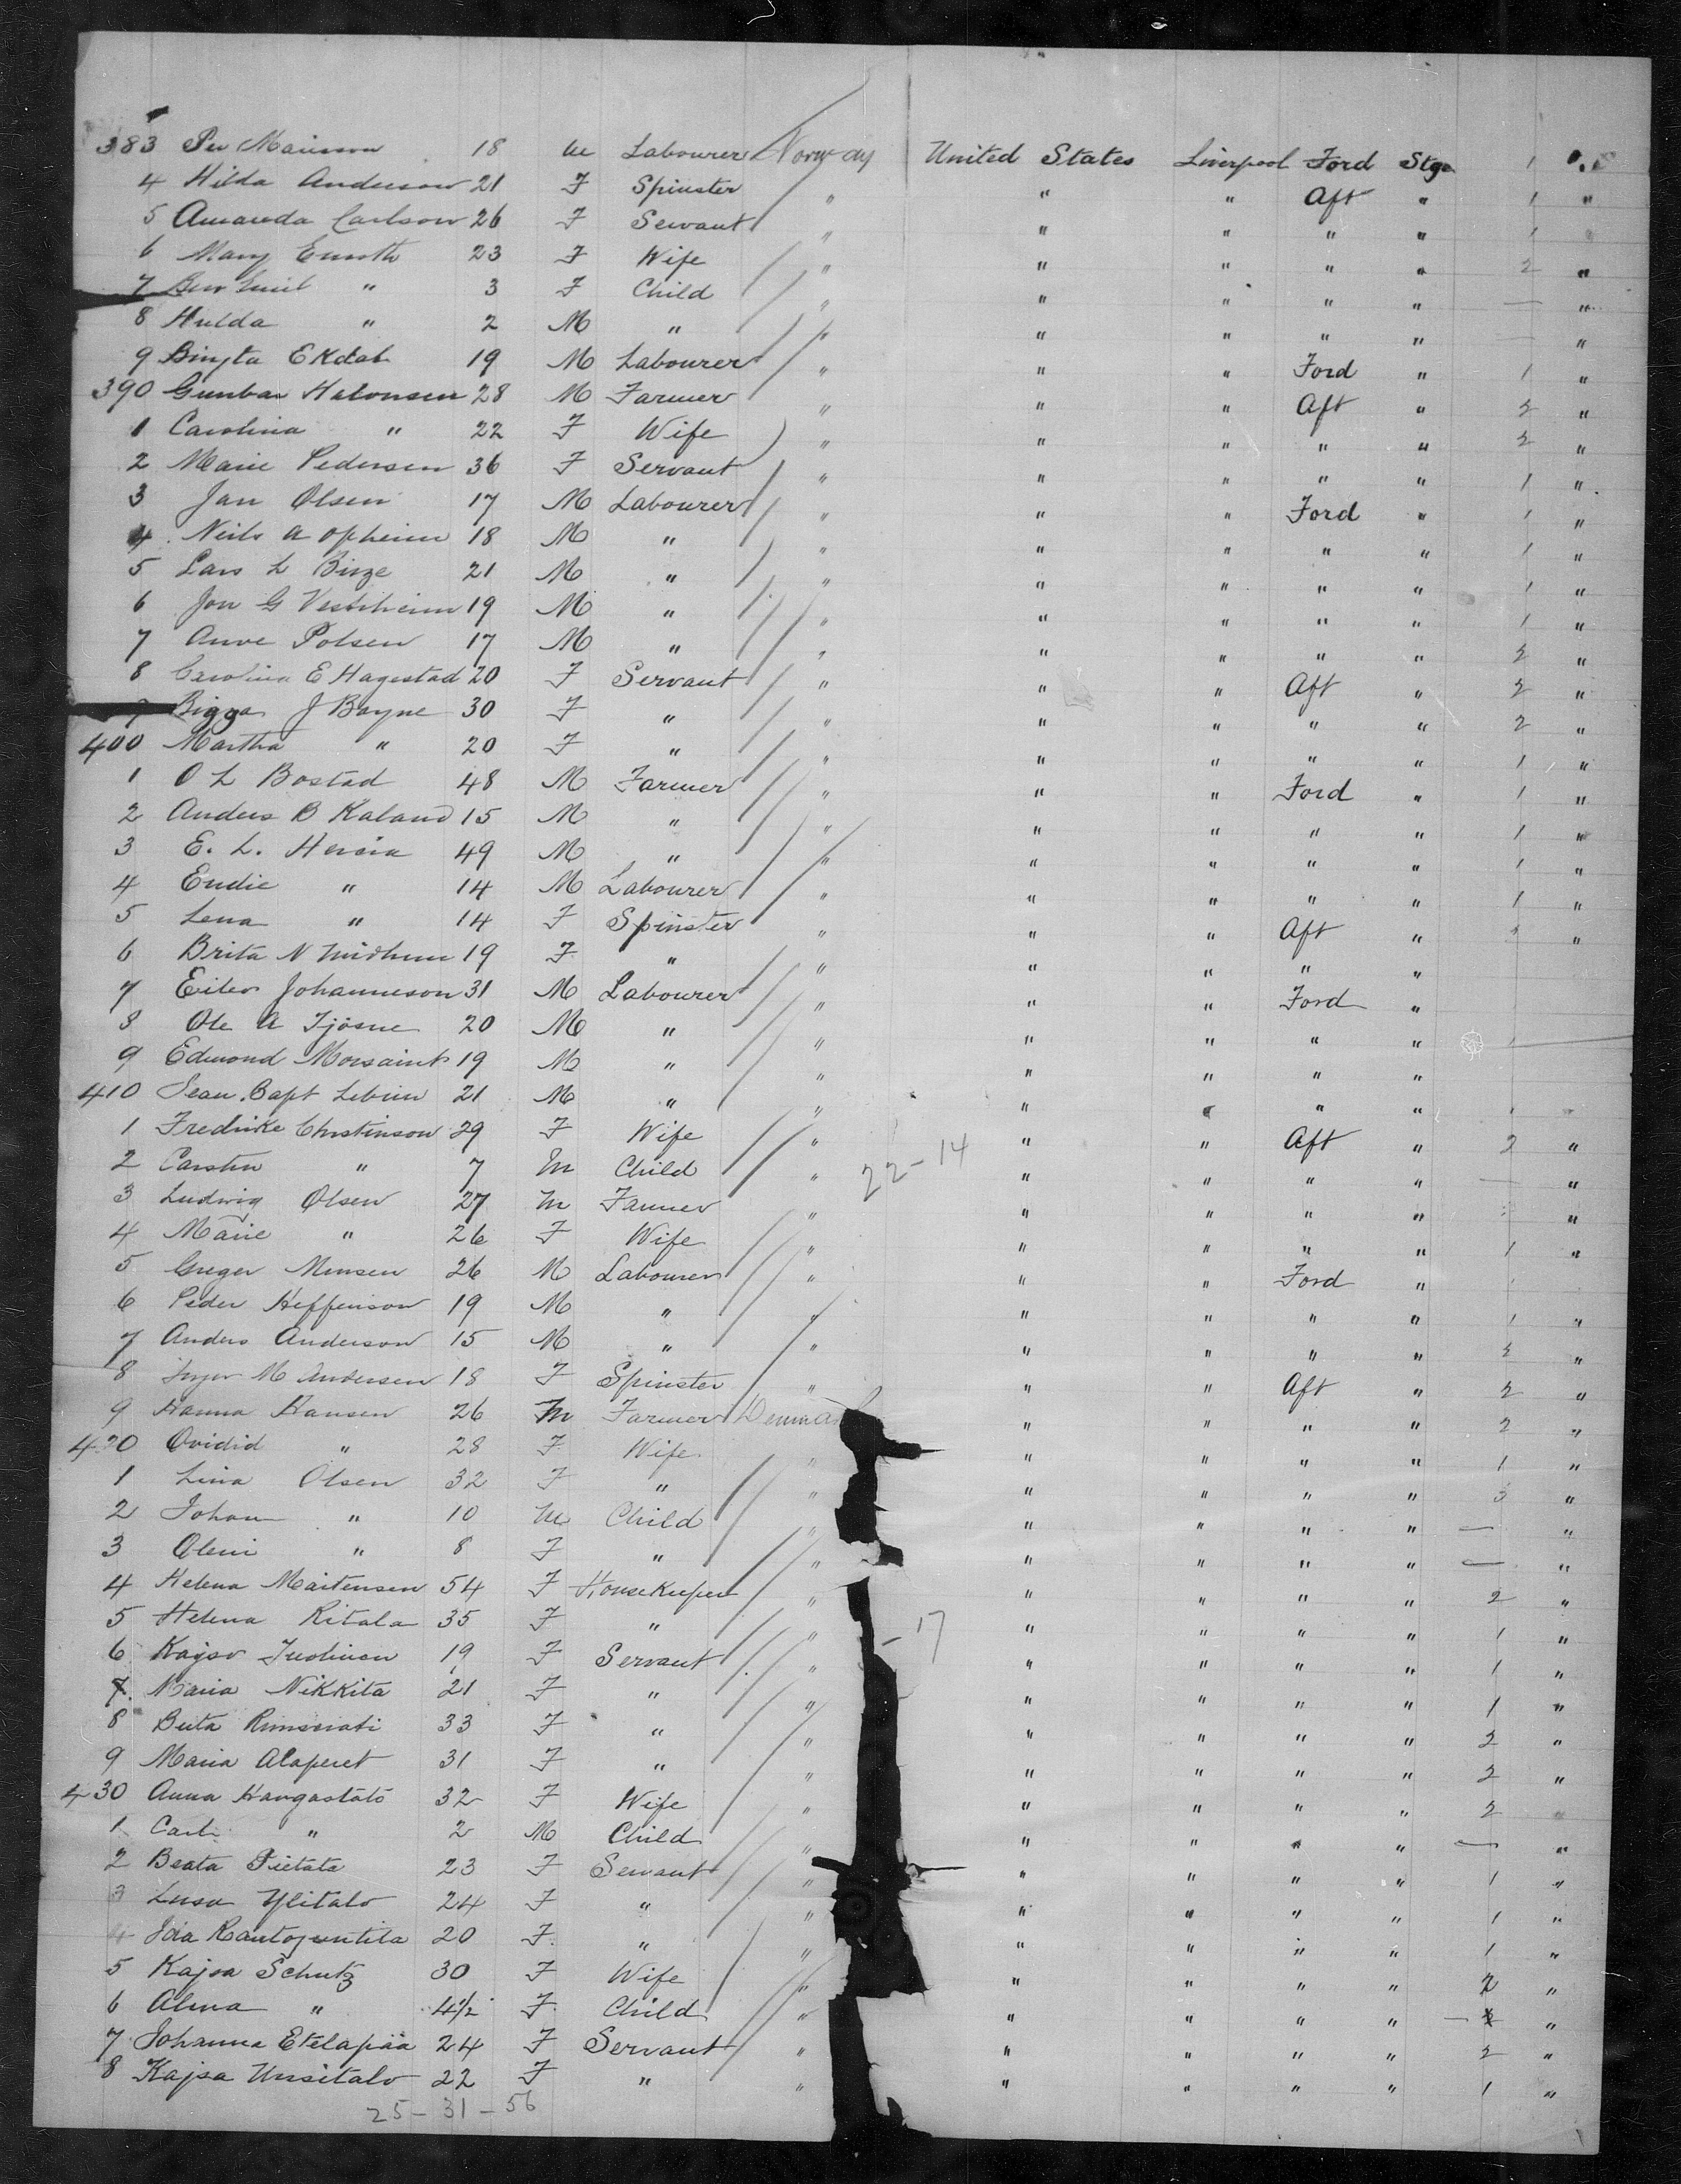 383 Per Maisson 18 M Labourer Norway United States Liverpool Ford Stge 1 "
4 Hilda Anderson 21 F Spinster " " " Aft " 1 "
5 Amanda Carlson 26 F Servant " " " " " 1
6 Mary Enroth 23 F Wife " " " " " 2 "
7 " 3 F Child " " " " " — "
8 Hulda " 2 M " " " " " " — "
9 Bingta Ekdah 19 M Labourer " " " Ford " 1 "
390 Gunbar Halvonsen 28 M Farmer " " " Aft " 2 "
1 Carolina " 22 F Wife " " " " " 2 "
2 Marie Pedersen 36 F Servant " " " " " 1 "
3 Jan Olsen 17 M Labourer " " " Ford " 1 "
4 Neils A Opheim 18 M " " " " " " 1 "
5 Lars L Birge 21 M " " " " " " 1 "
6 Jon G Vestiheim 19 M " " " " " " 1 "
7 Anve Polsen 17 M " " " " " " 2 "
8 Carolina E Hagestad 20 F Servant " " " Aft " 2 "
9 Bigga J Bayne 30 F " " " " " " 2 "
400 Martha " 20 F " " " " " " 1 "
1 O L Bostad 48 M Farmer " " " Ford " 1 "
2 Anders B Kaland 15 M " " " " " " 1 "
3 E. L. 49 M " " " " " " 1 "
4 Endie " 14 M Labourer " " " " " 1 "
5 Lena " 14 F Spinster " " " Aft " "
6 Brita N 19 F " " " " " "
7 Eiler Johanneson 31 M Labourer " " " Ford "
8 Ole A Tjösne 20 M " " " " " " 1
9 Edmond Morsaint 19 M " " " " " "
410 Jean Bapt Lebrun 21 M " " " " " " 1
1 Fredrike Christinson 29 F Wife " " " Aft " 2 "
2 Carsten " 7 M Child " 22-14 " " " " — "
3 Ludwig Olsen 27 M Farmer " " " " " "
4 Marie " 26 F Wife " " " " " 1 "
5 Greger Monsen 26 M Labourer " " " Ford "
6 Peder Heffenson 19 M " " " " " " 1 "
7 Anders Anderson 15 M " " " " " " 2 "
8 Inger M Andersen 18 F Spinster " " " Aft " 2 "
9 Hanna Hansen 26 M Farmer Denmark " " " " 2 "
420 Ovidid " 28 F Wife " " " " " 1 "
1 Lina Olsen 32 F " " " " " " 3 "
2 Johan " 10 M Child " " " " " — "
3 Oleni " 8 F " " " " " " — "
4 Helena Martensen 54 F Housekeeper " " " " " 2 "
5 Helena Ritala 35 F " " - 17 " " " " 1 "
6 Kajsa 19 F Servant " " " " " 1 "
7 Maria Nikkita 21 F " " " " " " 1 "
8 Beita 33 F " " " " " " 2 "
9 Maria Alaperet 31 F " " " " " " 2 "
430 Anna Kangastalo 32 F Wife " " " " " 2
1 Carl " 2 M Child " " " " " — "
2 Beata Pietata 23 F Servant " " " " " 1 "
3 Lusa Ylitalo 24 F " " " " " " 1 "
4 Ida Rautojuntita 20 F " " " " " " 1 "
5 Kajsa Schutz 30 F Wife " " " " " 2 "
6 Alma " 4½ F Child " " " " " — "
7 Johanna Etelapää 24 F Servant " " " " " 2 "
8 Kajsa Uusitalo 22 F " " " " " " 1 "
25-31-56